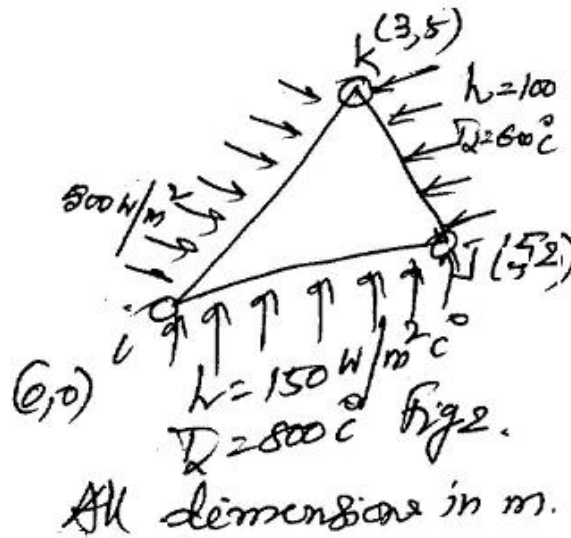 K (3,5)
h=100
T∞=600°C
500 W/m²
J (5,2)
i
(0,0)
h=150 W/m²C°
T∞=800°C
Fig 2.
All dimensions in m.